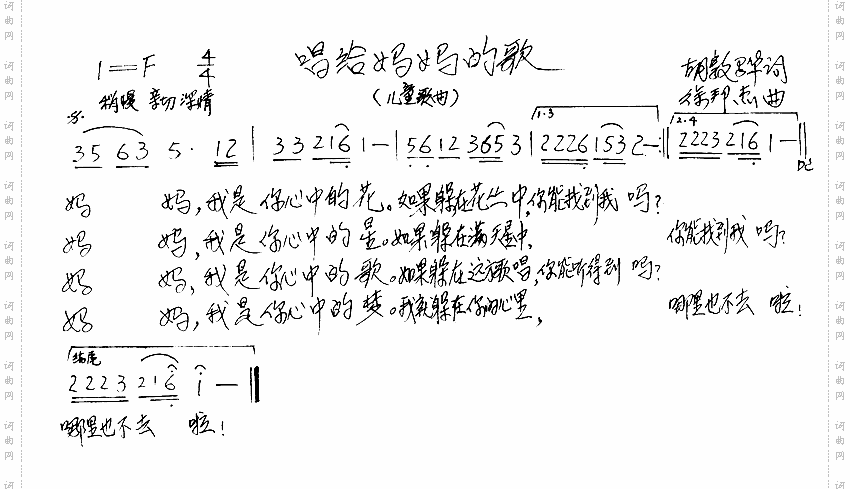 唱给妈妈的歌
1=F 4/4
胡敦骅词
稍慢 亲切 深情
(儿童歌曲)
徐邦杰曲
1.3
2.4
35 63 5· 12 | 33 216 1— | 5612 3653 | 2226 153 2— :‖ 2223 216 1— ‖
D.C
妈 妈,我是你心中的花。如果躲在花丛中,你能找到我 吗?
妈 妈,我是你心中的星。如果躲在满天星中, 你能找到我 吗?
妈 妈,我是你心中的歌。如果躲在这歌唱,你能听得到 吗?
妈 妈,我是你心中的梦。我就躲在你的心里, 哪里也不去 啦!
结尾
2223 216 i — ‖
哪里也不去 啦!
词曲网